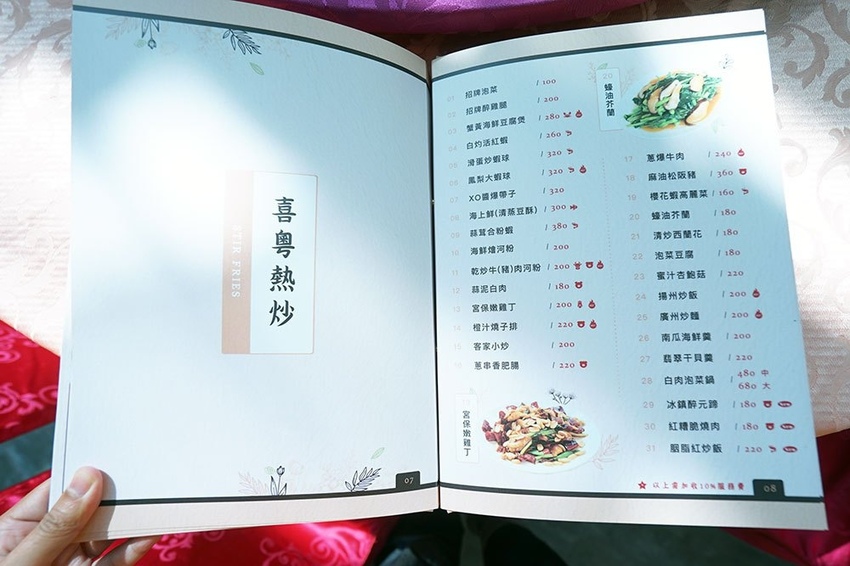 喜粵熱炒
STIR FRIES
07
01 招牌泡菜 / 100
02 招牌醉雞腿 / 200
03 蟹黃海鮮豆腐煲 / 280
04 白灼活紅蝦 / 260
05 滑蛋炒蝦球 / 320
06 鳳梨大蝦球 / 320
07 XO醬爆帶子 / 320
08 海上鮮(清蒸豆酥) / 300
09 蒜茸合粉蝦 / 380
10 海鮮燴河粉 / 200
11 乾炒牛(豬)肉河粉 / 200
12 蒜泥白肉 / 180
13 宮保嫩雞丁 / 200
14 橙汁燒子排 / 220
15 客家小炒 / 200
16 蔥串香肥腸 / 220
宮保嫩雞丁
20
蠔油芥蘭
17 蔥爆牛肉 / 240
18 麻油松阪豬 / 360
19 櫻花蝦高麗菜 / 160
20 蠔油芥蘭 / 180
21 清炒西蘭花 / 180
22 泡菜豆腐 / 180
23 蜜汁杏鮑菇 / 220
24 揚州炒飯 / 200
25 廣州炒麵 / 200
26 南瓜海鮮羹 / 200
27 翡翠干貝羹 / 220
28 白肉泡菜鍋 / 480 中
680 大
29 冰鎮醉元蹄 / 180
30 紅糟脆燒肉 / 180
31 胭脂紅炒飯 / 220
以上需加收10%服務費
08